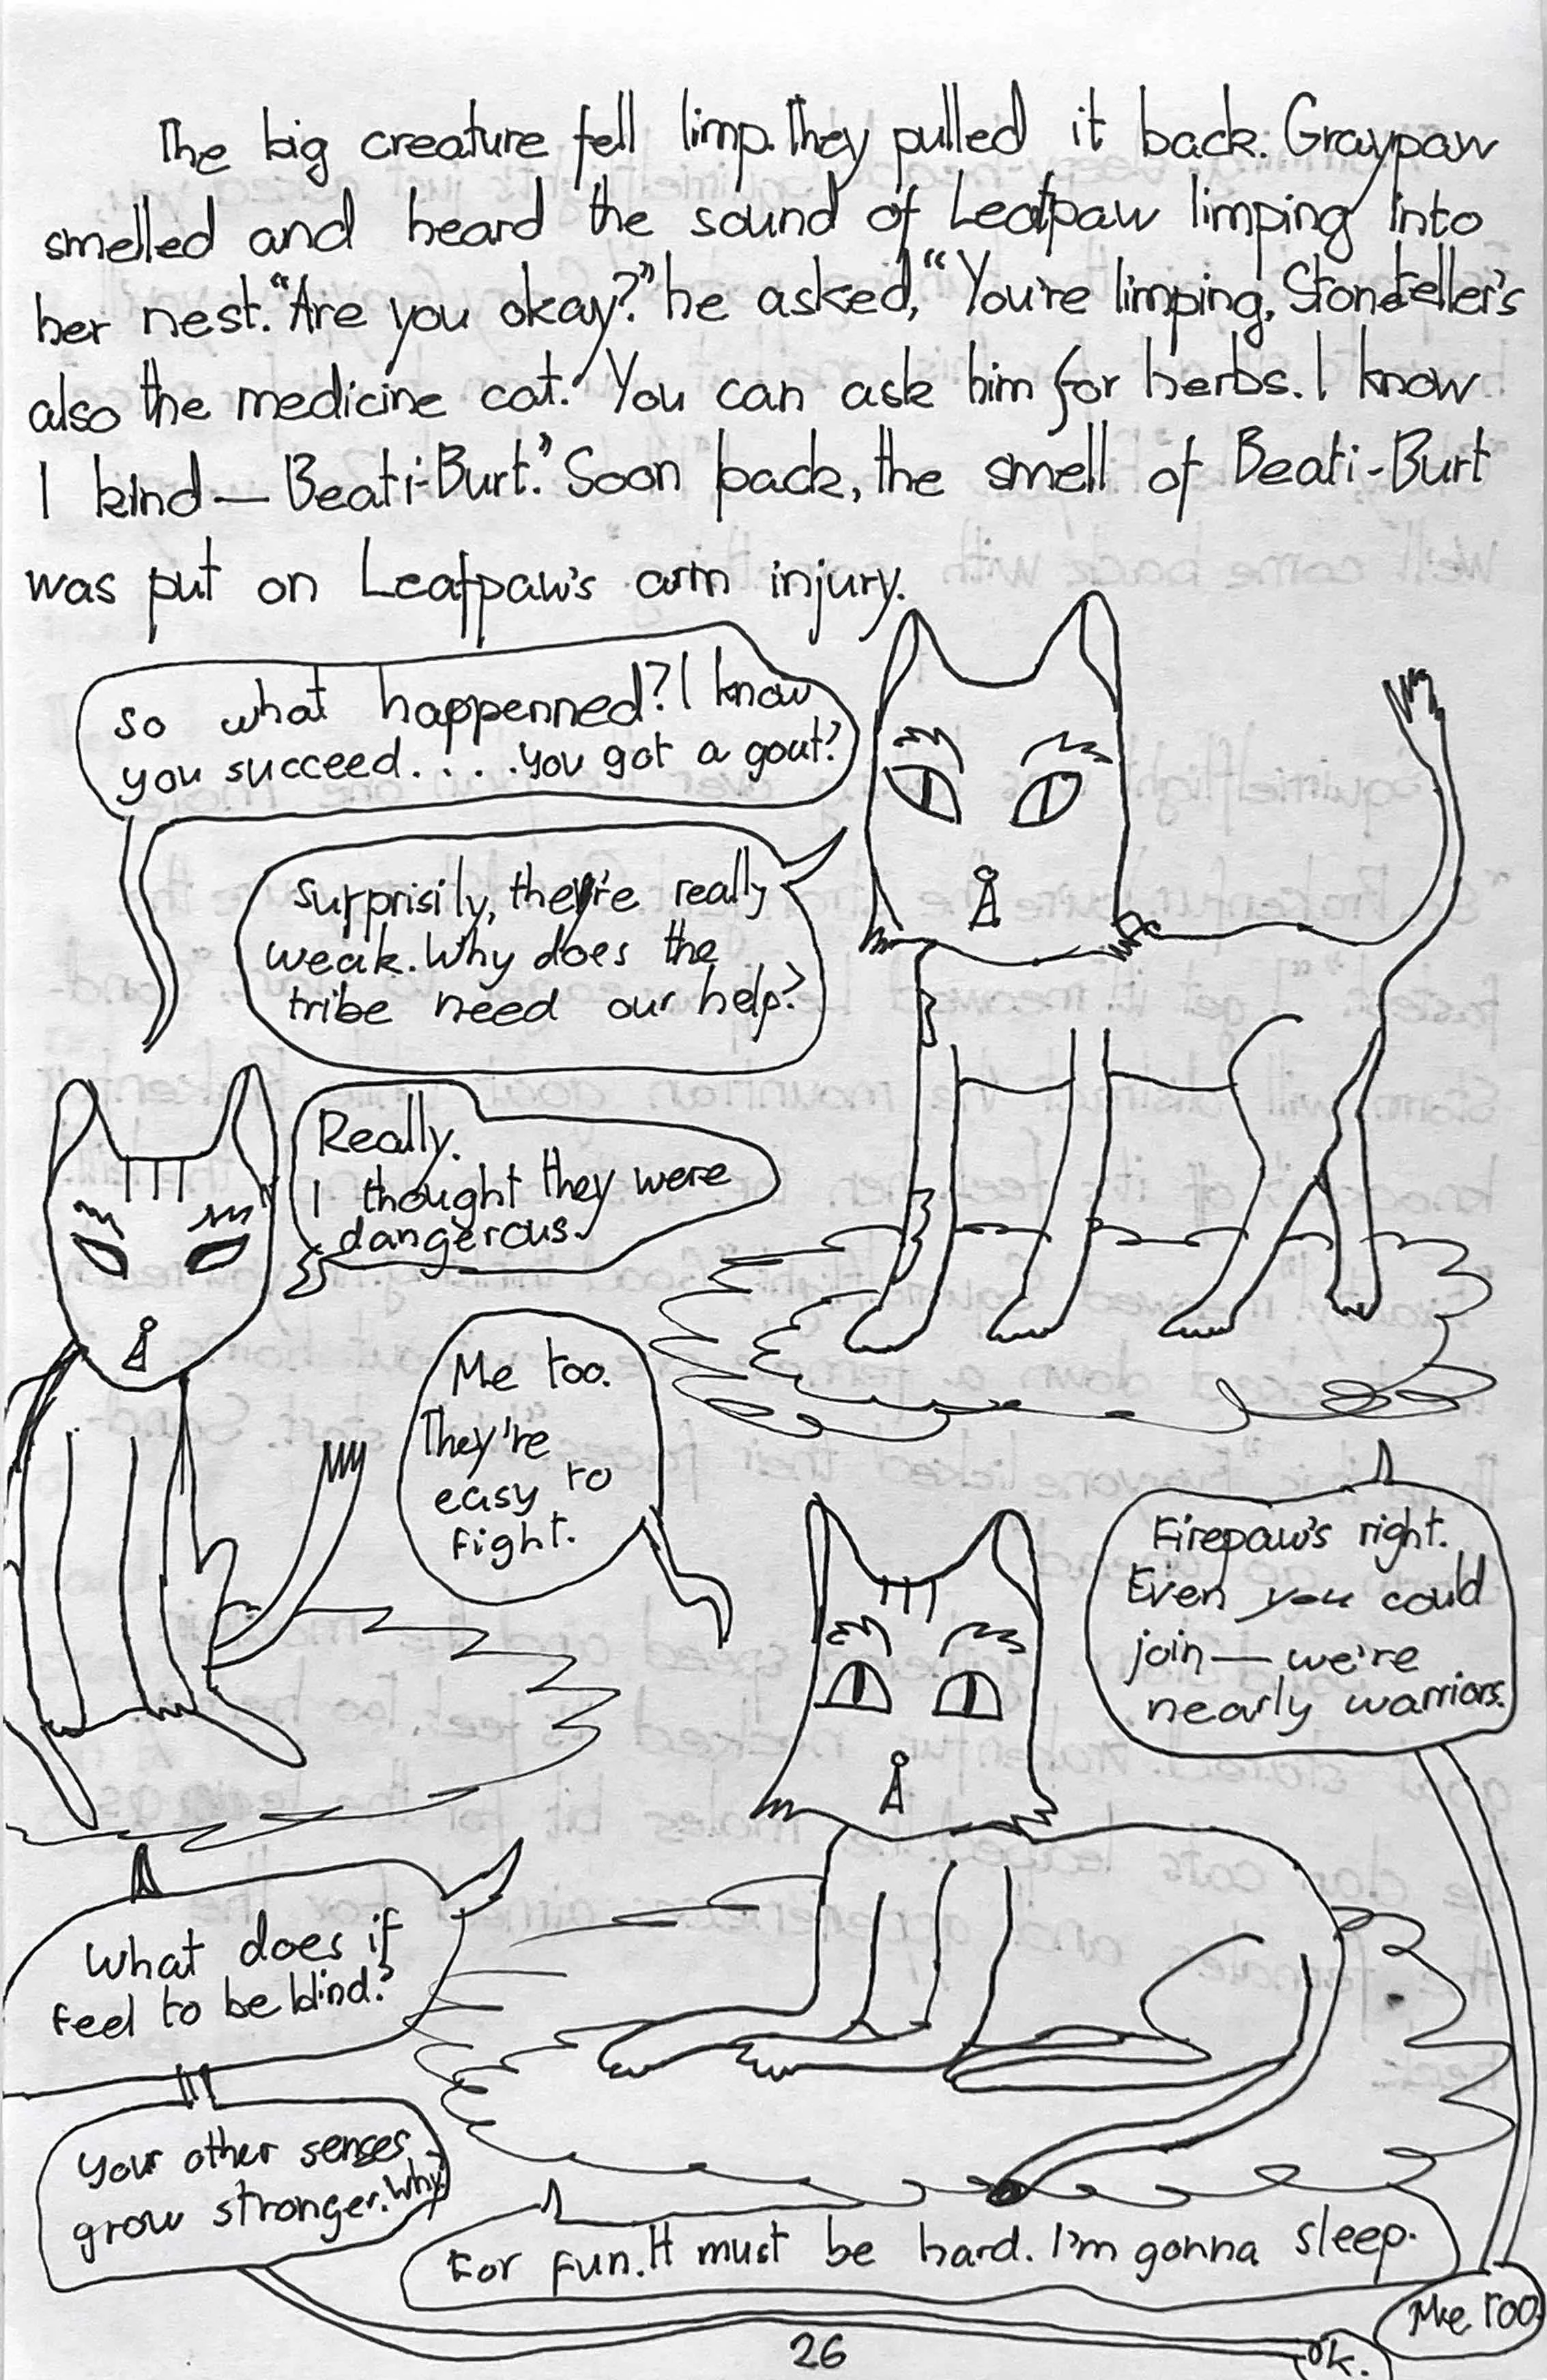 The big creature fell limp. They pulled it back. Graypaw
smelled and heard the sound of Leafpaw limping into
her nest. "Are you okay?" he asked, "You're limping. Stoneteller's
also the medicine cat. You can ask him for herbs. I know
1 kind — Beati-Burt." Soon back, the smell of Beati-Burt
was put on Leafpaw's arm injury.
So what happenned? I know
you succeed. . . . .you got a gout?
Surprisily, they're really
weak. Why does the
tribe need our help?
Really.
I thought they were
dangerous.
Me too.
They're
easy to
fight.
Firepaw's right.
Even you could
join — we're
nearly warriors.
What does if
feel to be blind?
Your other senses
grow stronger. Why?
For fun. It must be hard. I'm gonna sleep.
Me too.
ok.
26